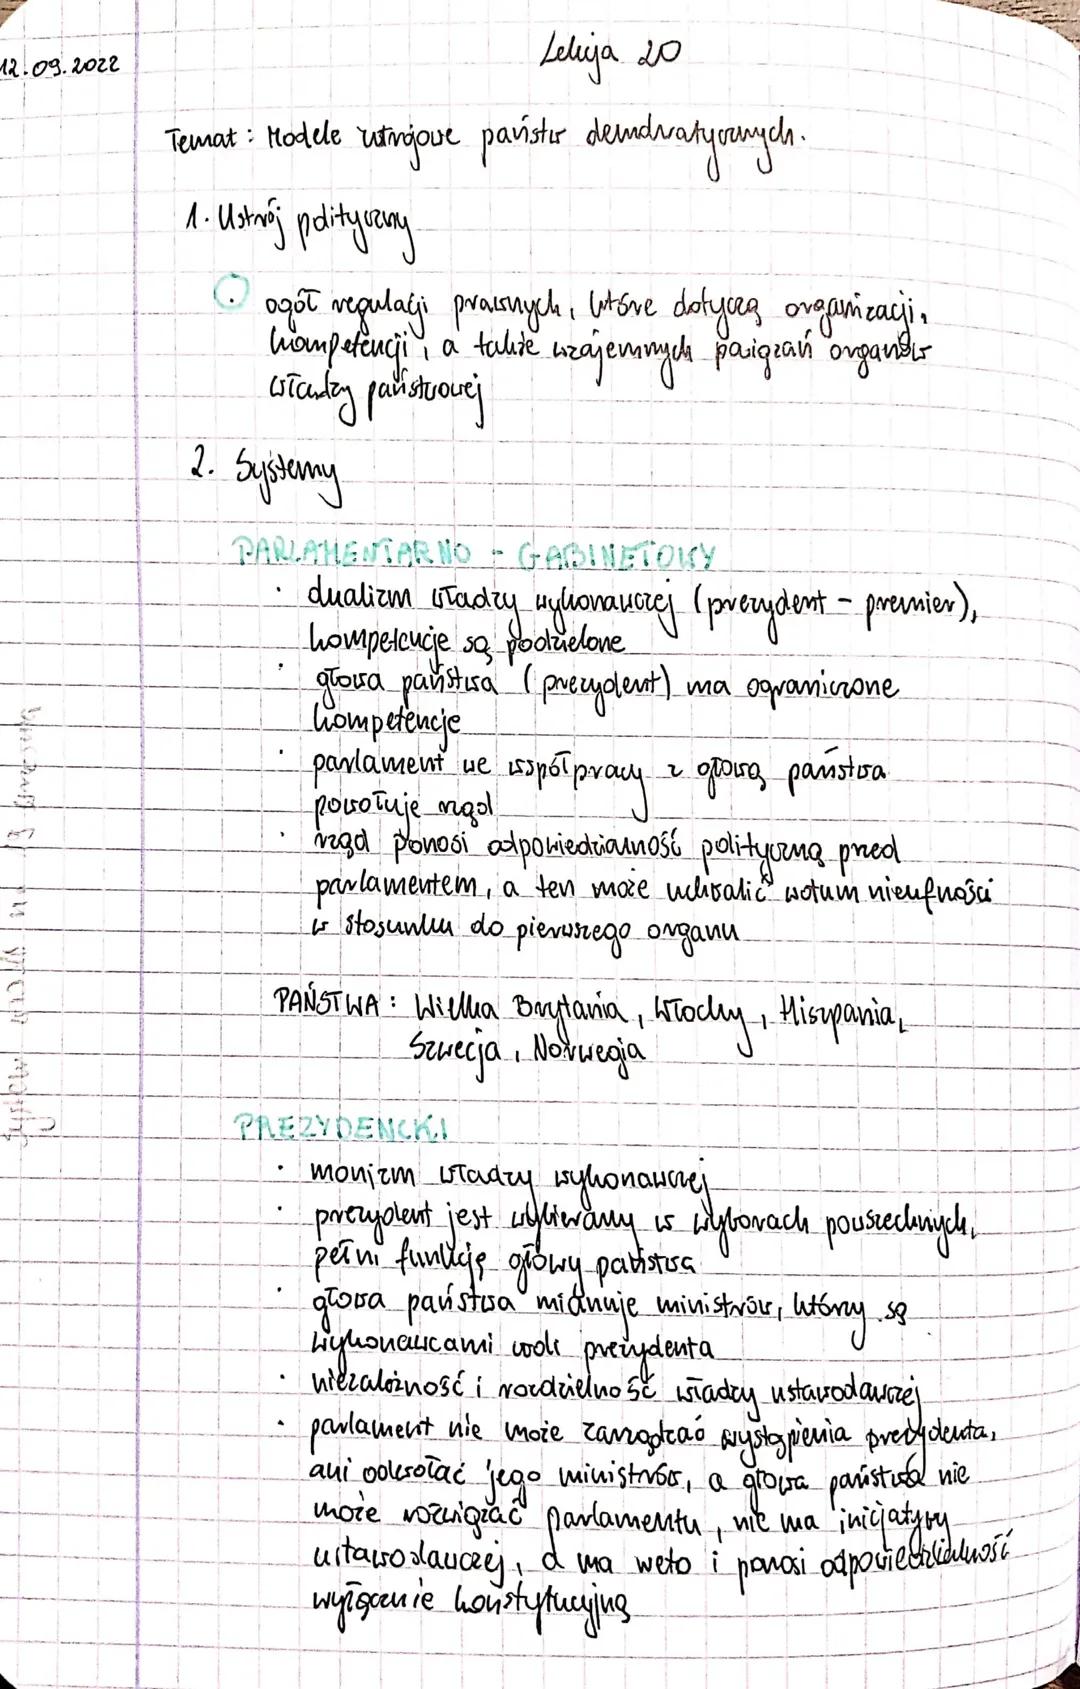 12.09.2022
Lekcja 20
Temat: Modele ustrojowe państw demokratycznych.
1. Ustrój polityczny
ogół regulacji prawnych, które dotyczą organizacji,
kompetencji, a także wzajemnych powiązań organów
władzy państwowej
2. Systemy
PARLAMENTARNO - GABINETOWY
· dualizm władzy wykonawczej (prezydent - premier),
kompetencje są podzielone
· głowa państwa (prezydent) ma ograniczone
kompetencje
· parlament we współpracy z głową państwa
powołuje rząd
· rząd ponosi odpowiedzialność polityczną przed
parlamentem, a ten może uchwalić wotum nieufności
w stosunku do pierwszego organu
PAŃSTWA: Wielka Brytania, Włochy, Hiszpania,
Szwecja, Norwegia
PREZYDENCKI
· monizm władzy wykonawczej
· prezydent jest wybierany w wyborach powszechnych,
pełni funkcję głowy państwa
· głowa państwa mianuje ministrów, którzy są
wykonawcami woli prezydenta
· niezależność i rozdzielność władzy ustawodawczej
· parlament nie może zarządzać wystąpienia prezydenta,
ani odwołać jego ministrów, a głowa państwa nie
może rozwiązać parlamentu, nie ma inicjatywy
ustawodawczej, a ma weto i ponosi odpowiedzialność
wyłącznie konstytucyjną